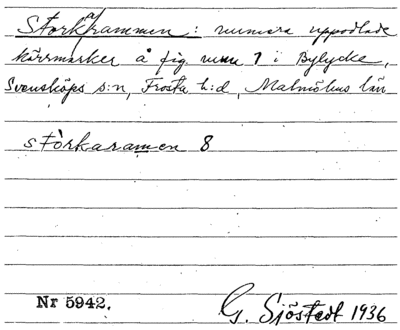 Storkrammen: numera uppodlade
kärrmarker å fig. num 7 i Bylycke,
Svensköps s:n, Frosta h:d, Malmöhus län
stòrkaramen 8
Nr 5942. G. Sjöstedt 1936